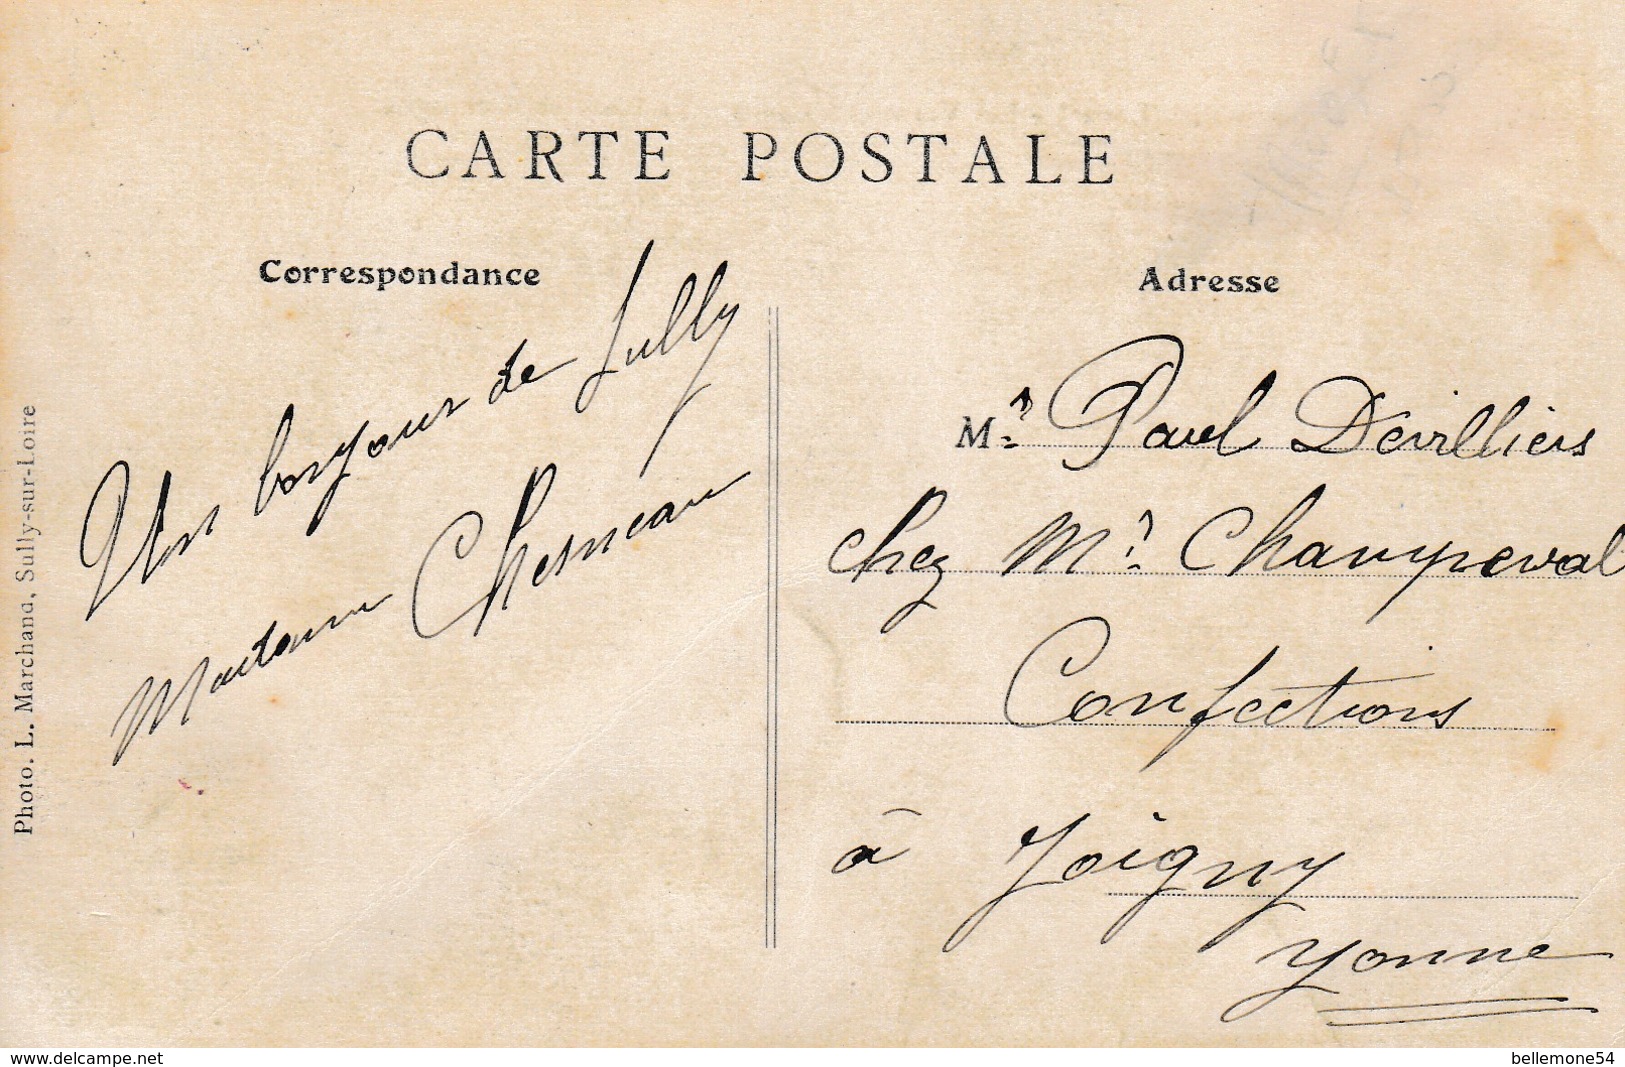 CARTE POSTALE
Correspondance
Un bonjour de Sully
Chesneau
Photo. L. Marchand, Sully-sur-Loire
Adresse
Mr Paul Devilliers
chez Mr Champeval
Confections
à Joigny
Yonne
www.delcampe.net
bellemone54